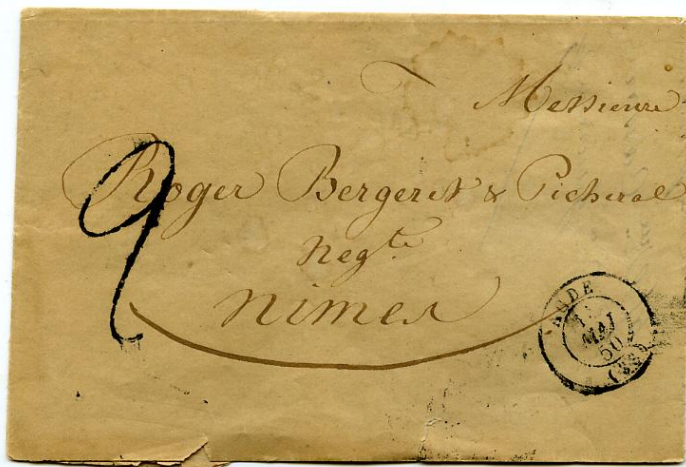 Messieurs
Roger Bergeret & Picheral
Negte
Nimes
2
MAI
50